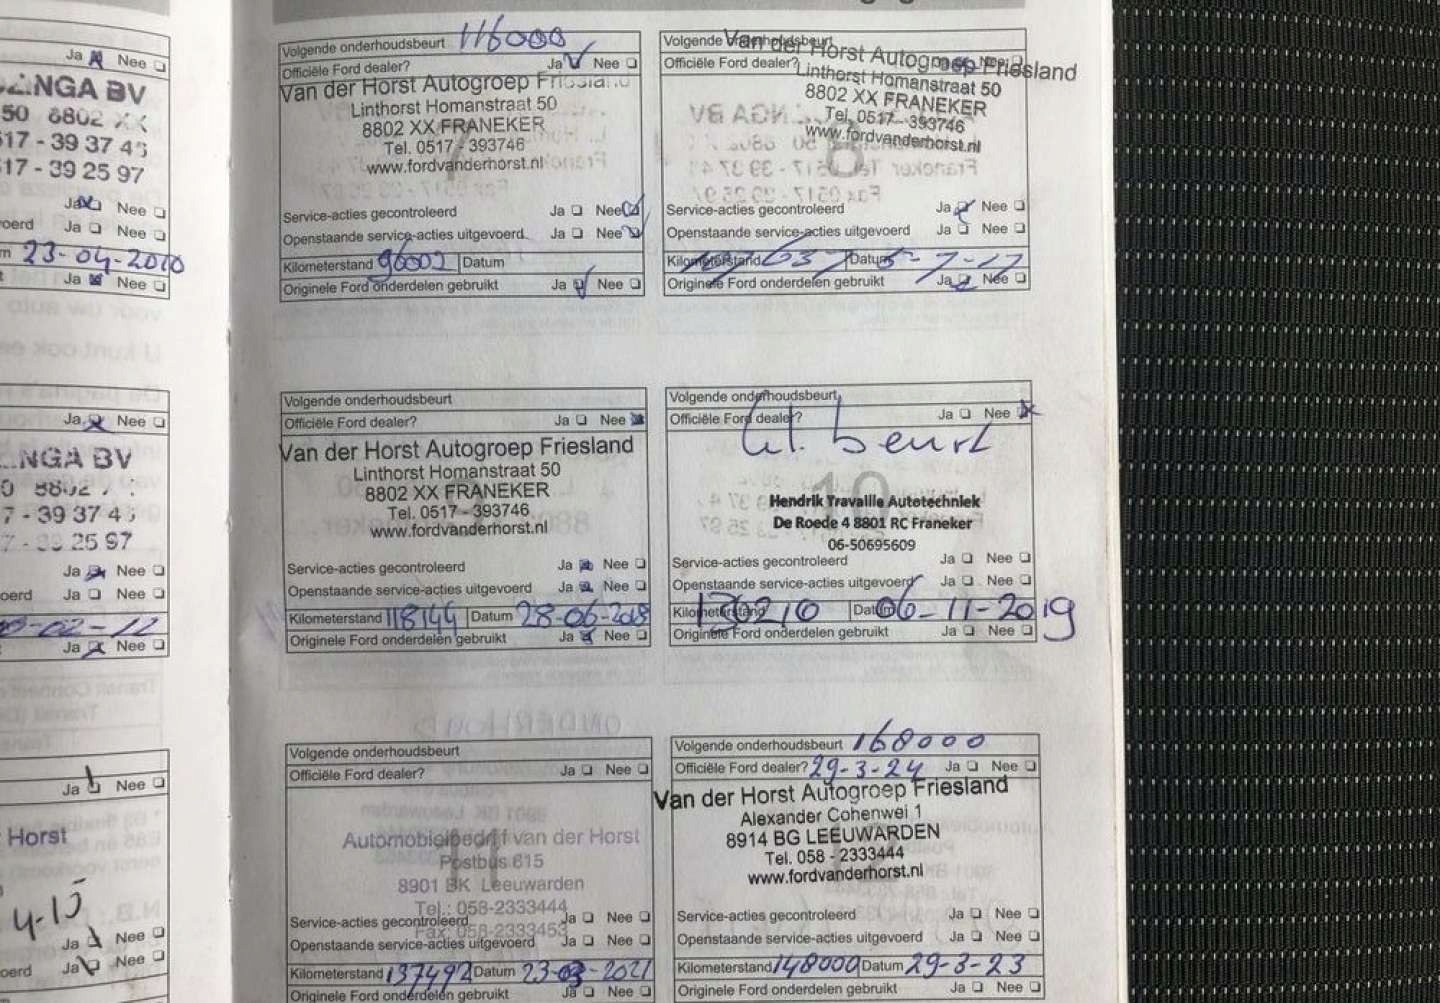 Ja Nee
NGA BV
50 8802 XX
517 - 39 37 43
517 - 39 25 97
Ja Nee
oerd Ja Nee
23-04-2010
Ja Nee
Ja Nee
NGA BV
7 - 39 37 43
25 97
Ja Nee
oerd Ja Nee
02-12
Ja Nee
Ja Nee
Horst
4-15
Ja Nee
oerd Ja Nee
Volgende onderhoudsbeurt 116000
Officiële Ford dealer? Ja Nee
Van der Horst Autogroep Friesland
Linthorst Homanstraat 50
8802 XX FRANEKER
Tel. 0517 - 393746
www.fordvanderhorst.nl
Service-acties gecontroleerd Ja Nee
Openstaande service-acties uitgevoerd Ja Nee
Kilometerstand 96002 Datum
Originele Ford onderdelen gebruikt Ja Nee
Volgende onderhoudsbeurt
Officiële Ford dealer? Ja Nee
Van der Horst Autogroep Friesland
Linthorst Homanstraat 50
8802 XX FRANEKER
Tel. 0517 - 393746
www.fordvanderhorst.nl
Service-acties gecontroleerd Ja Nee
Openstaande service-acties uitgevoerd Ja Nee
Kilometerstand Datum 5-7-17
Originele Ford onderdelen gebruikt Ja Nee
Volgende onderhoudsbeurt
Officiële Ford dealer? Ja Nee
Van der Horst Autogroep Friesland
Linthorst Homanstraat 50
8802 XX FRANEKER
Tel. 0517 - 393746
www.fordvanderhorst.nl
Service-acties gecontroleerd Ja Nee
Openstaande service-acties uitgevoerd Ja Nee
Kilometerstand 118144 Datum 28-06-2018
Originele Ford onderdelen gebruikt Ja Nee
Volgende onderhoudsbeurt
Officiële Ford dealer? Ja Nee
beurt
10
Hendrik Travaille Autotechniek
De Roede 4 8801 RC Franeker
06-50695609
Service-acties gecontroleerd Ja Nee
Openstaande service-acties uitgevoerd Ja Nee
Kilometerstand 130210 Datum 06-11-2019
Originele Ford onderdelen gebruikt Ja Nee
Volgende onderhoudsbeurt
Officiële Ford dealer? Ja Nee
11
Automobielbedrijf van der Horst
Postbus 615
8901 BK Leeuwarden
Tel.: 058-2333444
Fax: 058-2333453
Service-acties gecontroleerd Ja Nee
Openstaande service-acties uitgevoerd Ja Nee
Kilometerstand 137492 Datum 23-03-2021
Originele Ford onderdelen gebruikt Ja Nee
Volgende onderhoudsbeurt 168000
Officiële Ford dealer? 29-3-24 Ja Nee
Van der Horst Autogroep Friesland
Alexander Cohenwei 1
8914 BG LEEUWARDEN
Tel. 058 - 2333444
www.fordvanderhorst.nl
Service-acties gecontroleerd Ja Nee
Openstaande service-acties uitgevoerd Ja Nee
Kilometerstand 148000 Datum 29-3-23
Originele Ford onderdelen gebruikt Ja Nee